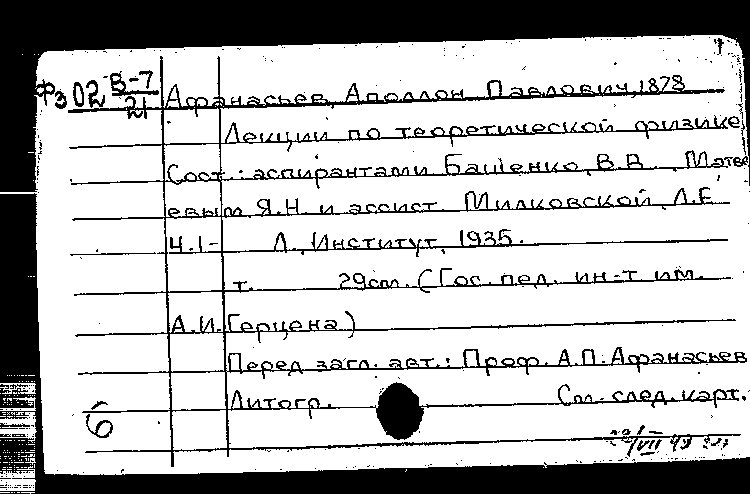 Фз 02 В-7/21 Афанасьев, Аполлон Павлович, 1878
Лекции по теоретической физике
Сост.: аспирантами Бащенко, В.В., Матве
евым Я.Н. и ассист. Милковской, Л.Е.
Ч.1- Л., Институт, 1935.
т. 29см. (Гос. пед. ин-т им.
А.И. Герцена)
Перед загл. авт.: Проф. А.П. Афанасьев
Литогр. См. след. карт.
6
VII 49